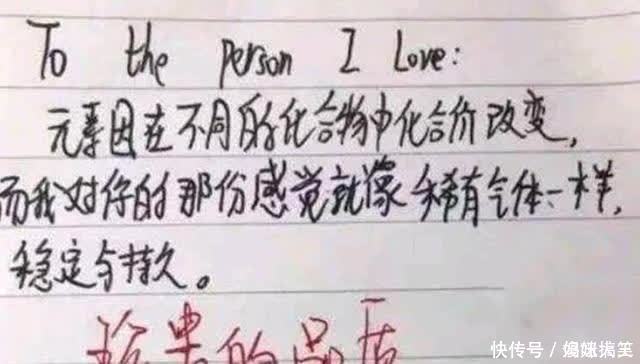 To the person I Love:
元素因在不同的化合物中化合价改变,
而我对你的那份感觉就像稀有气体一样,
稳定与持久。
珍贵的品质
快传号／嫗媸搞笑